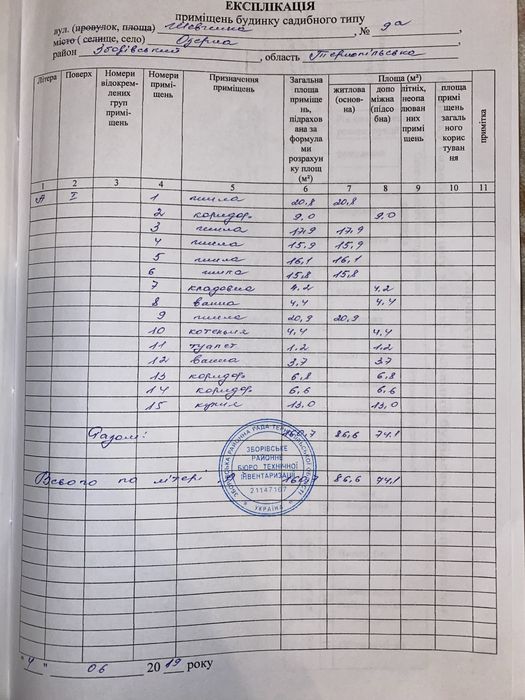 ЕКСПЛІКАЦІЯ
приміщень будинку садибного типу
вул. (провулок, площа) Шевченка, № 9а,
місто ( селище, село) Озерна,
район Зборівський, область Тернопільська
Літера Поверх Номери відокремлених груп приміщень Номери приміщень Призначення приміщень Загальна площа приміщень, підрахована за формулами розрахунку площ (м²) Площа (м²) житлова (основна) допоміжна (підсобна) літніх, неопалюваних приміщень площа приміщень загального користування примітка
1 2 3 4 5 6 7 8 9 10 11
А I 1 житла 20,8 20,8
2 коридор 9,0 9,0
3 житла 17,9 17,9
4 житла 15,9 15,9
5 житла 16,1 16,1
6 житла 15,8 15,8
7 кладовка 4,2 4,2
8 ванна 4,4 4,4
9 житла 20,9 20,9
10 котельня 4,4 4,4
11 туалет 1,2 1,2
12 ванна 3,7 3,7
13 коридор 6,8 6,8
14 коридор 6,6 6,6
15 кухня 13,0 13,0
Разом: 160,7 86,6 74,1
Всього по літері А 160,7 86,6 74,1
ЗБОРІВСЬКА РАЙОННА РАДА ТЕРНОПІЛЬСЬКОЇ ОБЛАСТІ
ЗБОРІВСЬКЕ
РАЙОННЕ
БЮРО ТЕХНІЧНОЇ
ІНВЕНТАРИЗАЦІЇ
21147167
УКРАЇНА
"4" 06 2019 року